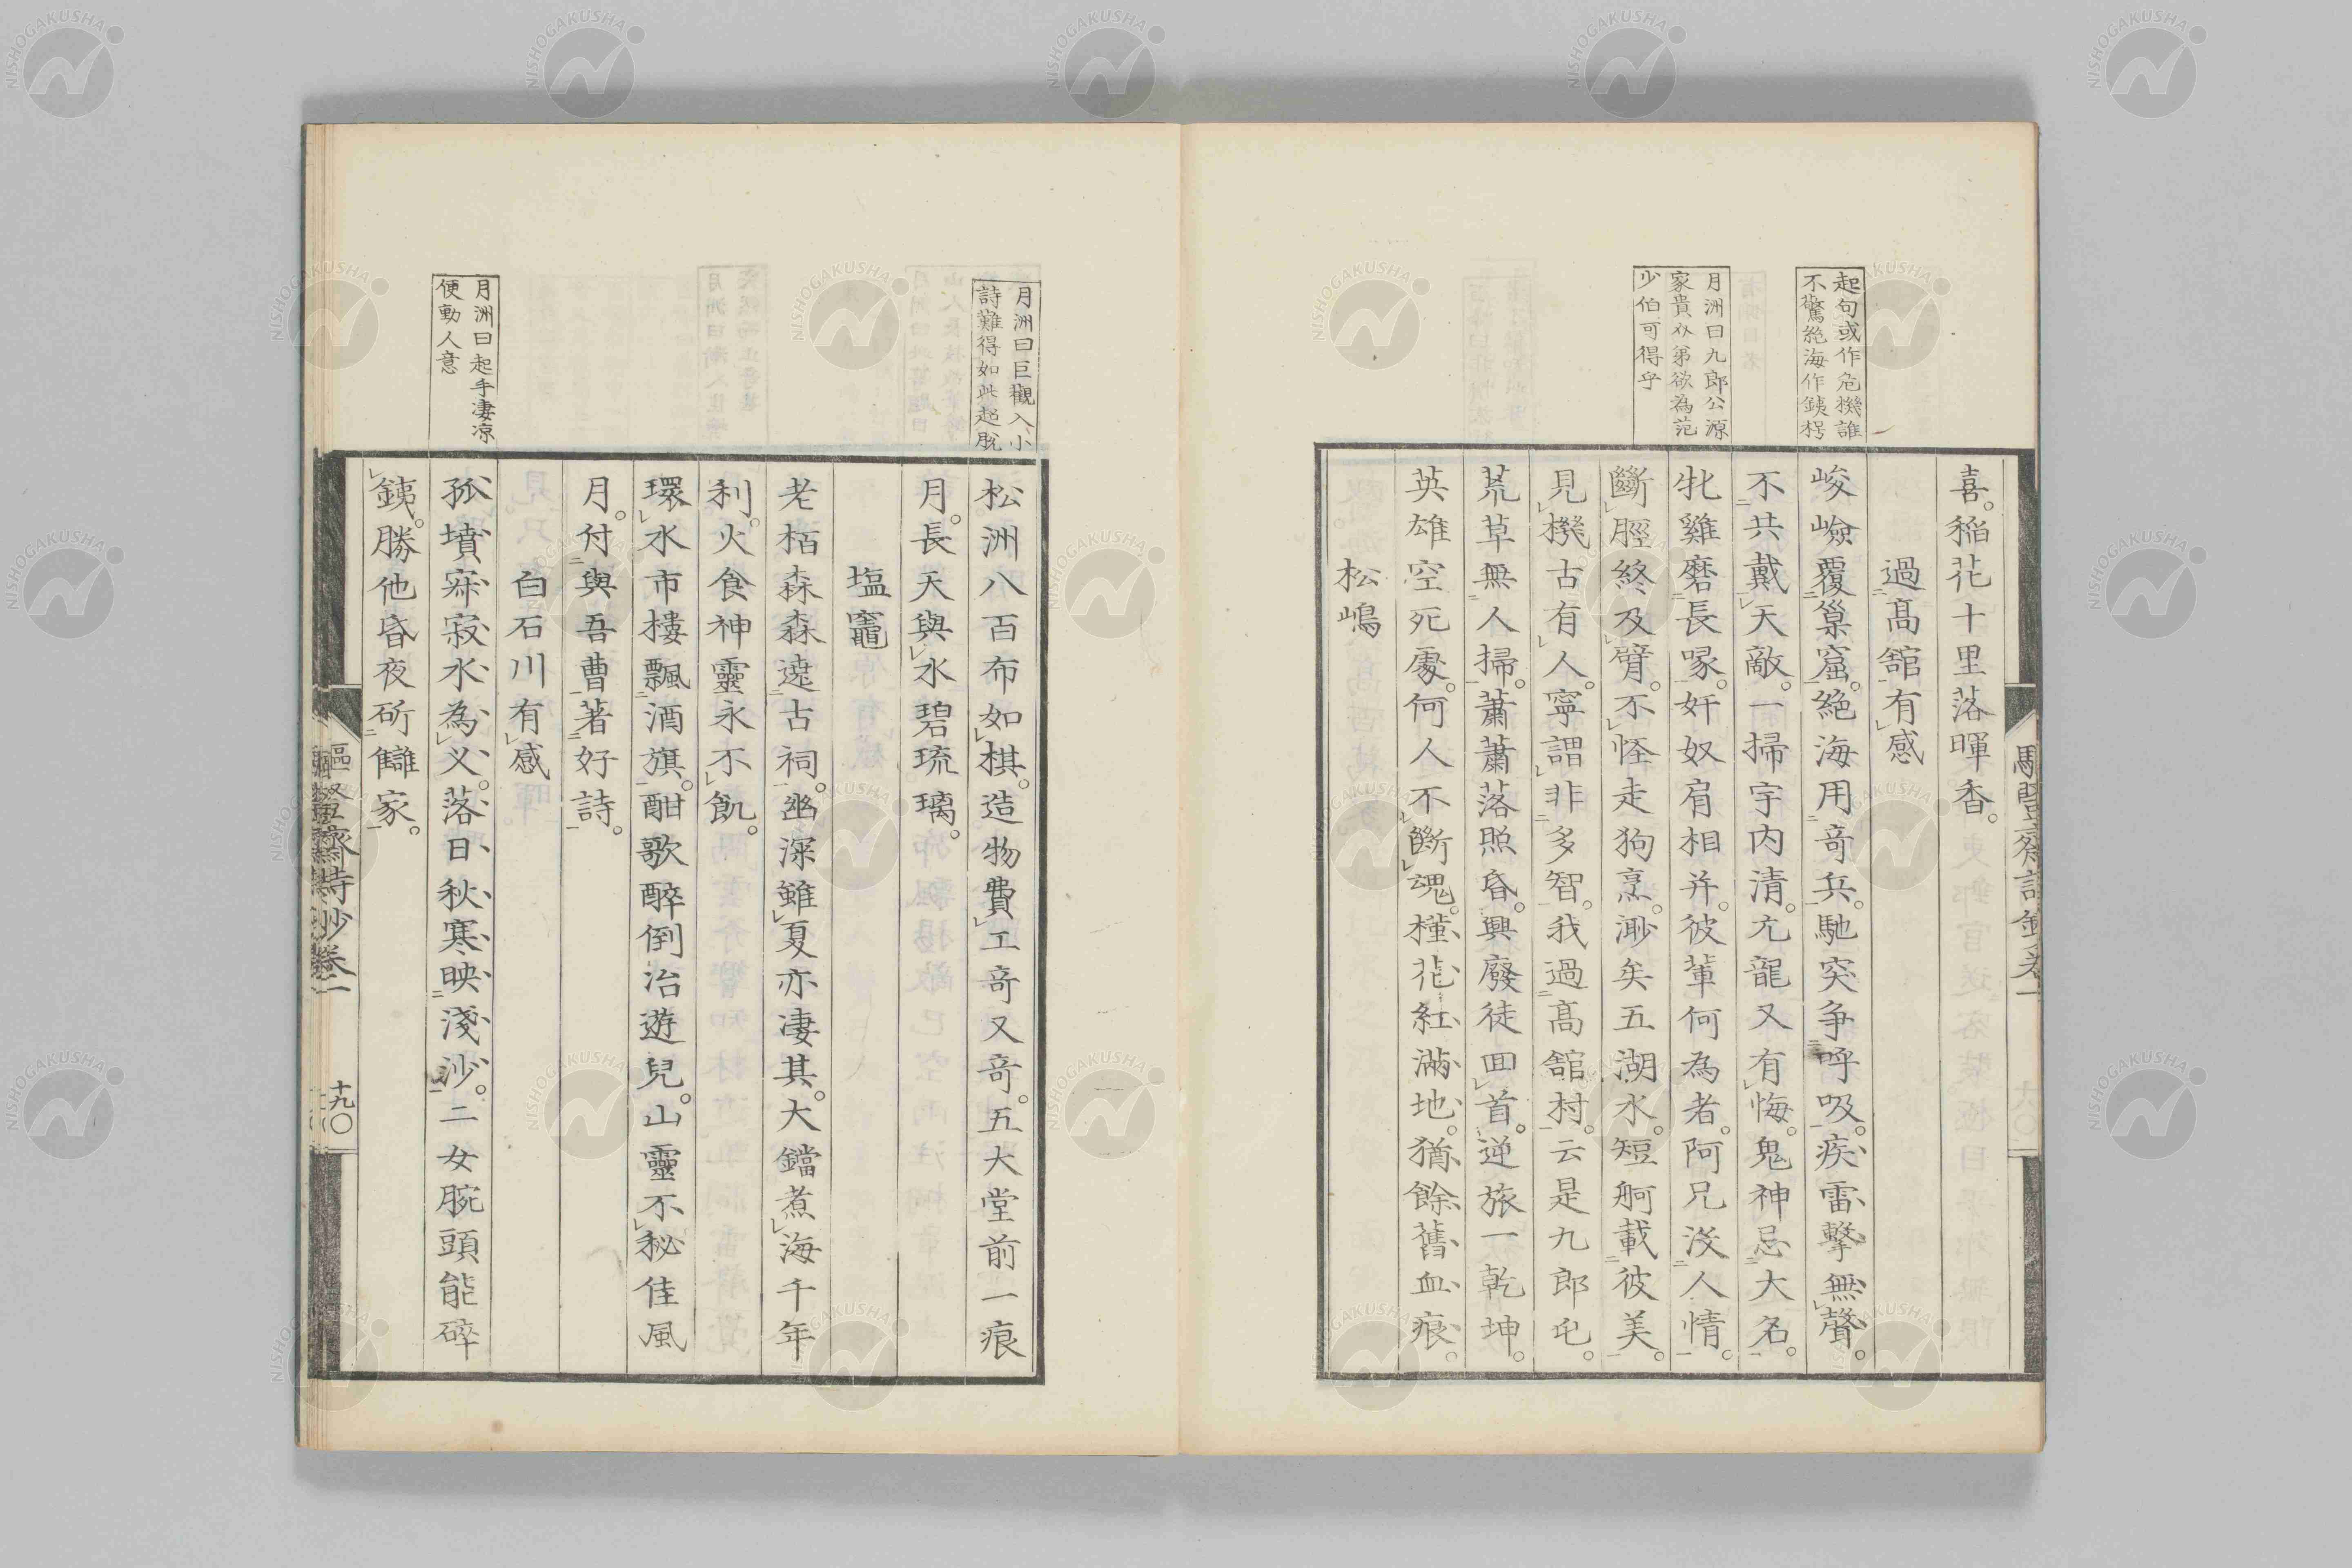 起句或作危機誰
不驚絶海作銕拐
月洲曰九郎公源
家貴介弟欲為范
少伯可得乎
喜。稲花十里落暉香。
過髙舘有感
峻嶮覆巢窟。絶海用竒兵。馳突争呼吸。疾雷擊無聲。
不共戴天敵。一掃宇内清。亢龍又有悔。鬼神忌大名。
牝雞磨長喙。奸奴肩相并。彼輩何為者。阿兄没人情。
斷脛終及臂。不怪走狗烹。渺矣五湖水。短舸載彼美。
見機古有人。寧謂非多智。我過髙舘村。云是九郎屯。
荒草無人掃。蕭蕭落照昏。興廢徒回首。逆旅一乾坤。
英雄空死處。何人不斷魂。槿花紅滿地。猶餘舊血痕。
松嶋
月洲曰巨觀入小
詩難得如此超脱
月洲曰起手凄凉
便動人意
松洲八百布如棋。造物費工竒又竒。五大堂前一痕
月。長天與水碧琉璃。
塩竈
老栝森森遶古祠。幽深雖夏亦凄其。大鐺煮海千年
利。火食神靈永不飢。
環水市樓飄酒旗。酣歌醉倒冶遊兒。山靈不秘佳風
月。付與吾曹著好詩。
白石川有感
孤墳寂寂水為义。落日秋寒映淺沙。二女腕頭能碎
銕。勝他昏夜斫讎家。
齋詩鈔卷一
十九